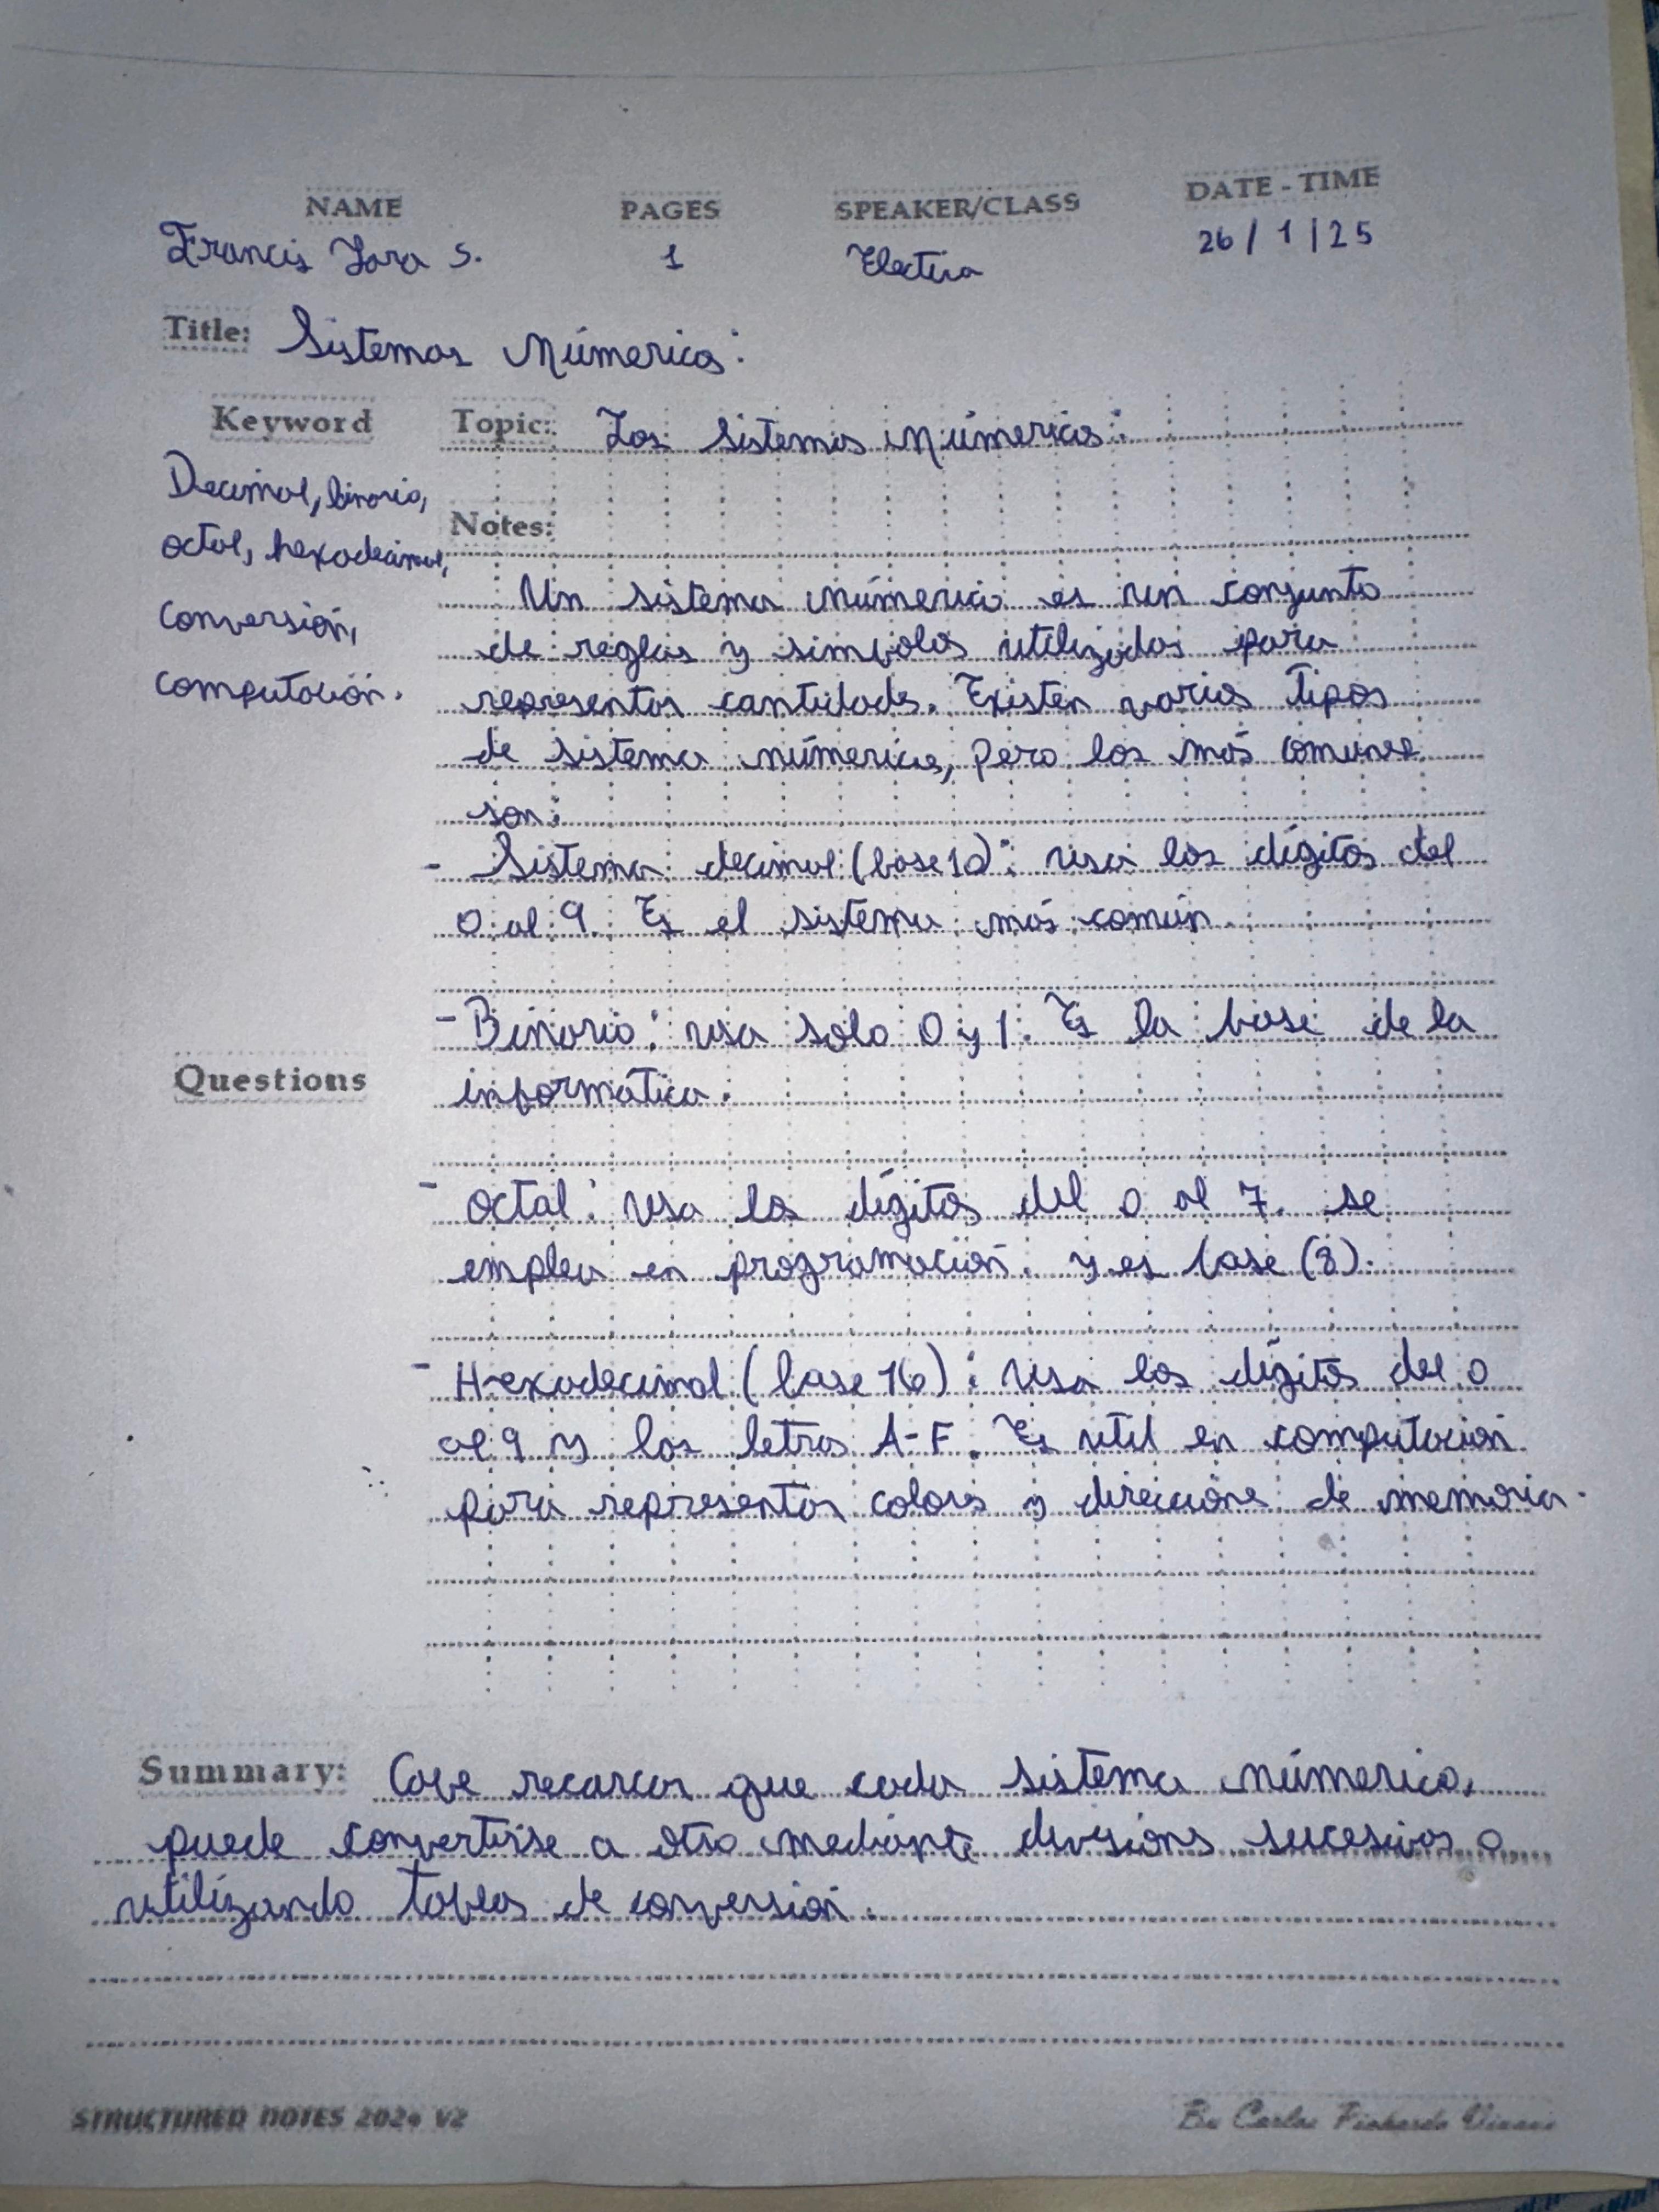 NAME PAGES SPEAKER/CLASS DATE - TIME
Francis Lara S. 1 Electiva 26/1/25
Title: Sistemas Númericos:
Keyword
Decimal, binario,
octal, hexadecimal,
conversión,
computación.
Topic: Los sistemas númericos:
Notes:
Un sistema númerico es un conjunto
de reglas y simbolos utilizados para
representar cantidades. Existen varios tipos
de sistema númericos, pero los más comunes
son:
- Sistema decimal (base 10): usa los dígitos del
0 al 9. Es el sistema más común.
- Binario: usa solo 0 y 1. Es la base de la
informática.
Questions
- octal: usa los dígitos del 0 al 7. se
emplea en programación. y es base (8).
- Hexadecimal (base 16): usa los dígitos del 0
al 9 y las letras A-F. Es util en computación
para representar colores y direcciones de memoria.
Summary: Cabe recarcar que cada sistema númerico,
puede convertirse a otro mediante divisiones sucesivas o
utilizando tablas de conversión.
STRUCTURED NOTES 2024 V2
By Carlos